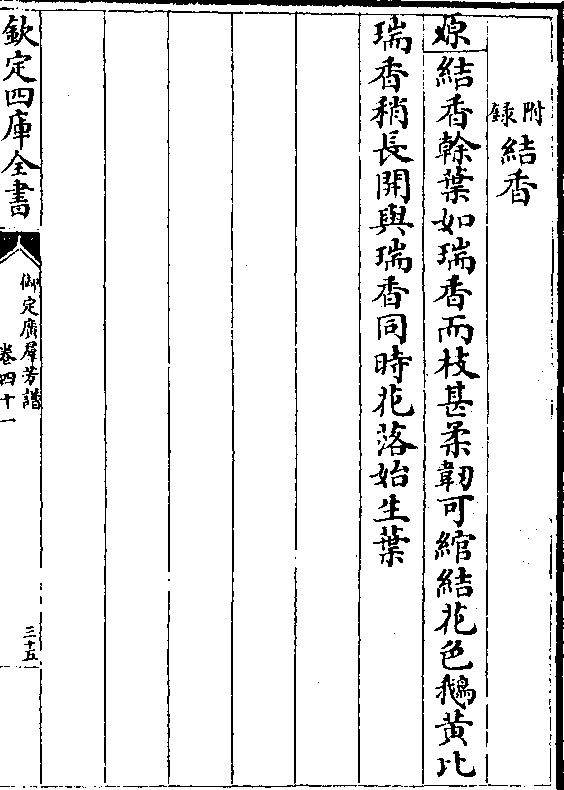 附録結香
原結香榦葉如瑞香而枝甚柔韌可綰結花色鵝黃比
瑞香稍長開與瑞香同時花落始生葉
欽定四庫全書
御定廣羣芳譜
卷四十一
三十五